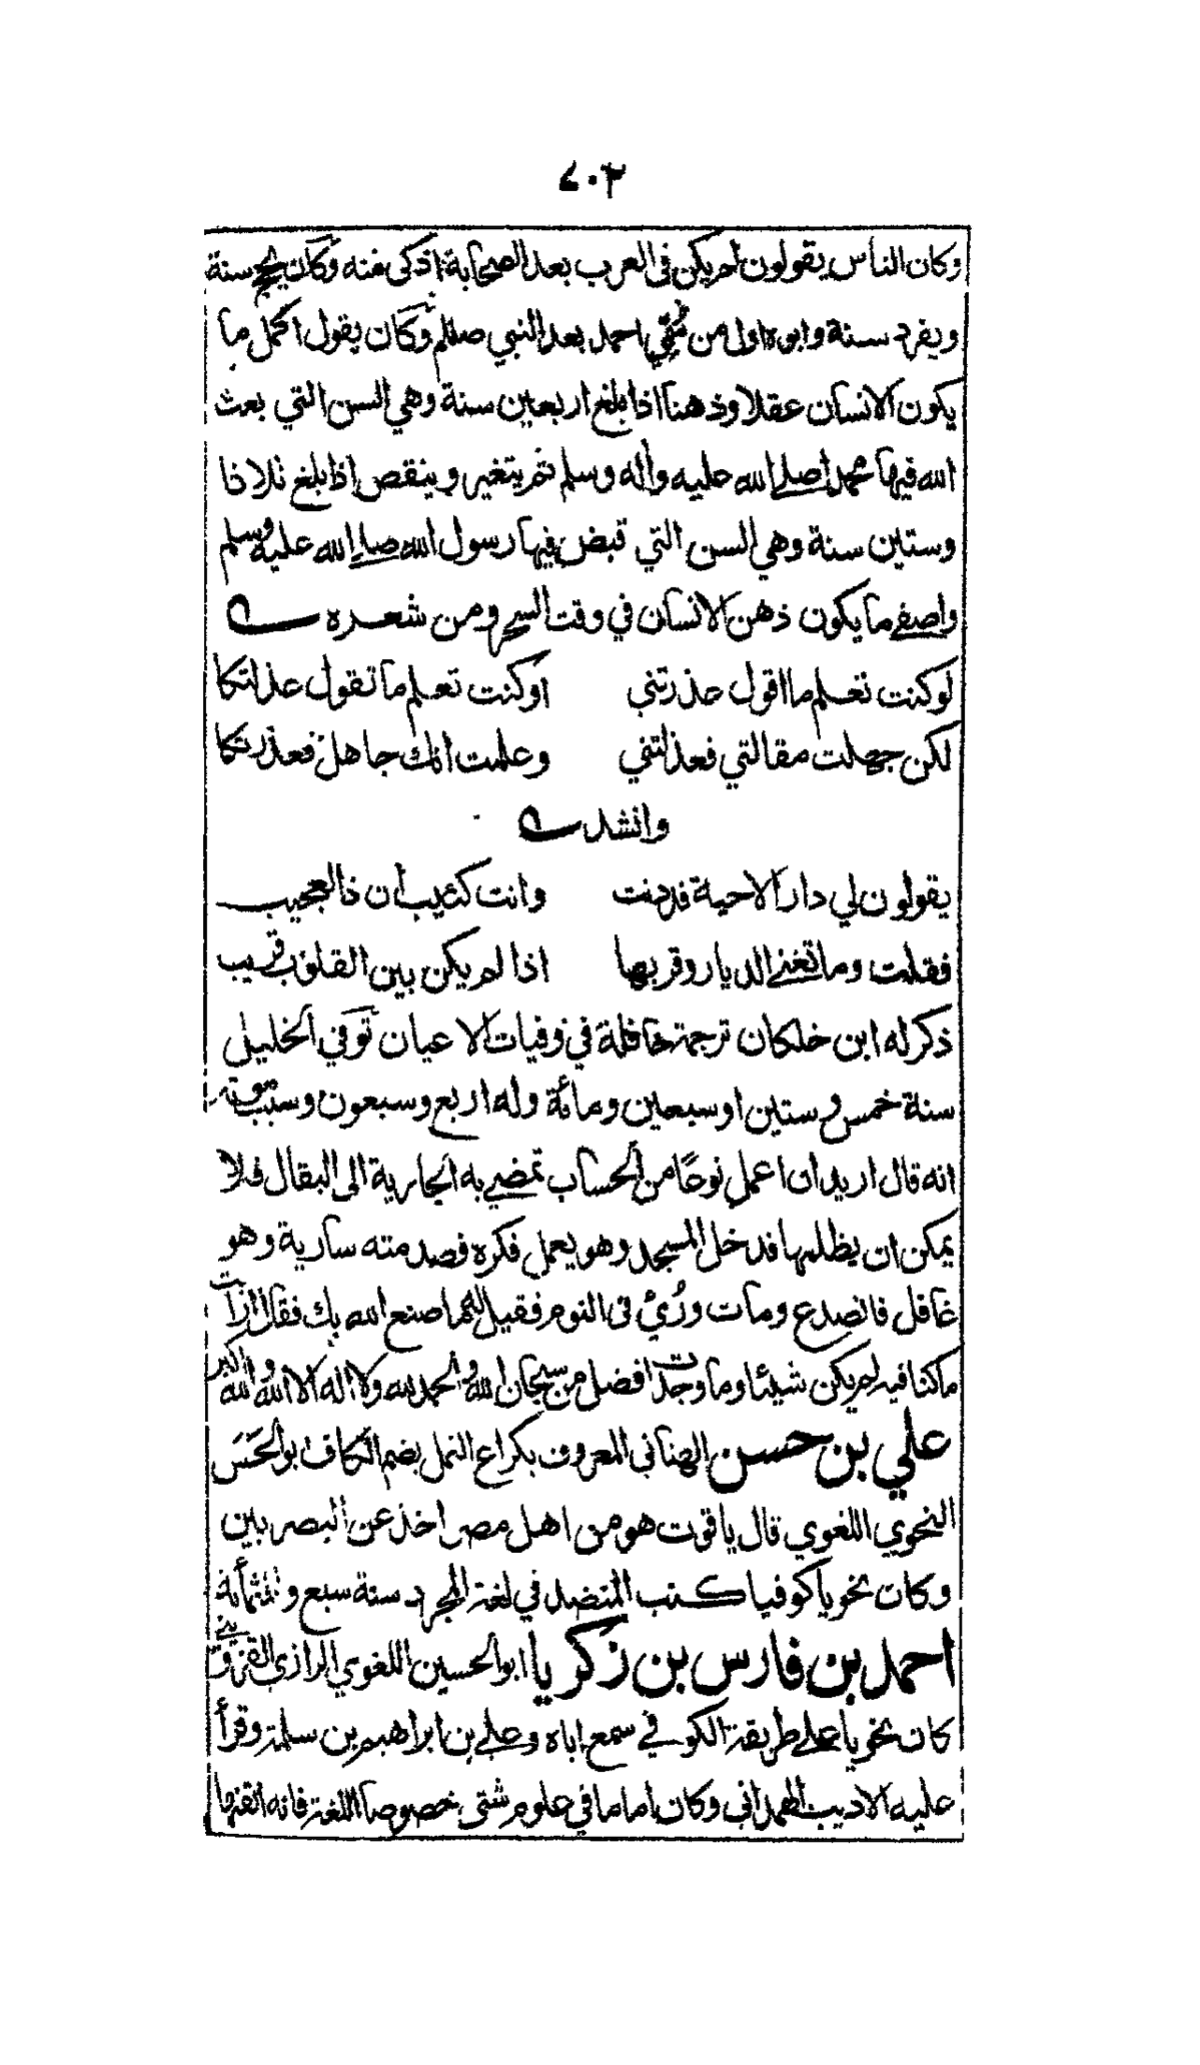 ٤٠٢
وكان الناس يقولون لم يكن فى العرب بعد الصحابة اذكى منه وكان يحج سنة
ويفرد سنة وابوه اول من سُمّي باحمد بعد النبي صللم وكان يقول اكمل ما
يكون الانسان عقلا وذهنا اذا بلغ اربعين سنة وهي السن التي بعث
الله فيها محمدا صلے الله عليه واله وسلم ثم يتغير وينقص اذا بلغ ثلاثا
وستين سنة وهي السن التي قبض فيها رسول الله صلے الله عليه وسلم
واصفے ما يكون ذهن الانسان في وقت السحر ومن شعره ے
لو كنت تعلم ما اقول عذرتني او كنت تعلم ما تقول عذلتكا
لكن جهلت مقالتي فعذلتني وعلمت انك جاهل فعذرتكا
وانشد ے
يقولون لي دار الاحبة قد دنت وانت كئيب ان ذا لعجيب
فقلت وما تغنے الديار وقربها اذا لم يكن بين القلوب قريب
ذكر له ابن خلكان ترجمة حافلة في وفيات الاعيان توفي الخليل
سنة خمس وستين او سبعين ومائة وله اربع وسبعون وسبب موته
انه قال اريد ان اعمل نوعًا من الحساب تمضي به الجارية الى البقال فلا
يمكن ان يظلمها فدخل المسجد وهو يعمل فكره فصدمته سارية وهو
غافل فانصدع ومات ورُئي فى النوم فقيل له ما صنع الله بك فقال ارأيت
ما كنا فيه لم يكن شيئا وما وجدت افضل من سبحان الله والحمد لله ولا اله الا الله والله اكبر
علي بن حسن الهنائي المعروف بكراع النمل بضم الكاف ابو الحَسَن
النحوي اللغوي قال ياقوت هو من اهل مصر اخذ عن البصريين
وكان نحويا كوفيا كتب المنضد في لغة المجرد سنة سبع وثلثمائة
احمد بن فارس بن زكريا ابو الحسين اللغوي الرازي القزويني
كان نحويا علے طريقة الكوفي سمع اباه وعلے بن ابراهيم بن سلمة وقرأ
عليه الاديب الهمداني وكان اماما في علوم شتى خصوصا اللغة فانه اتقنها